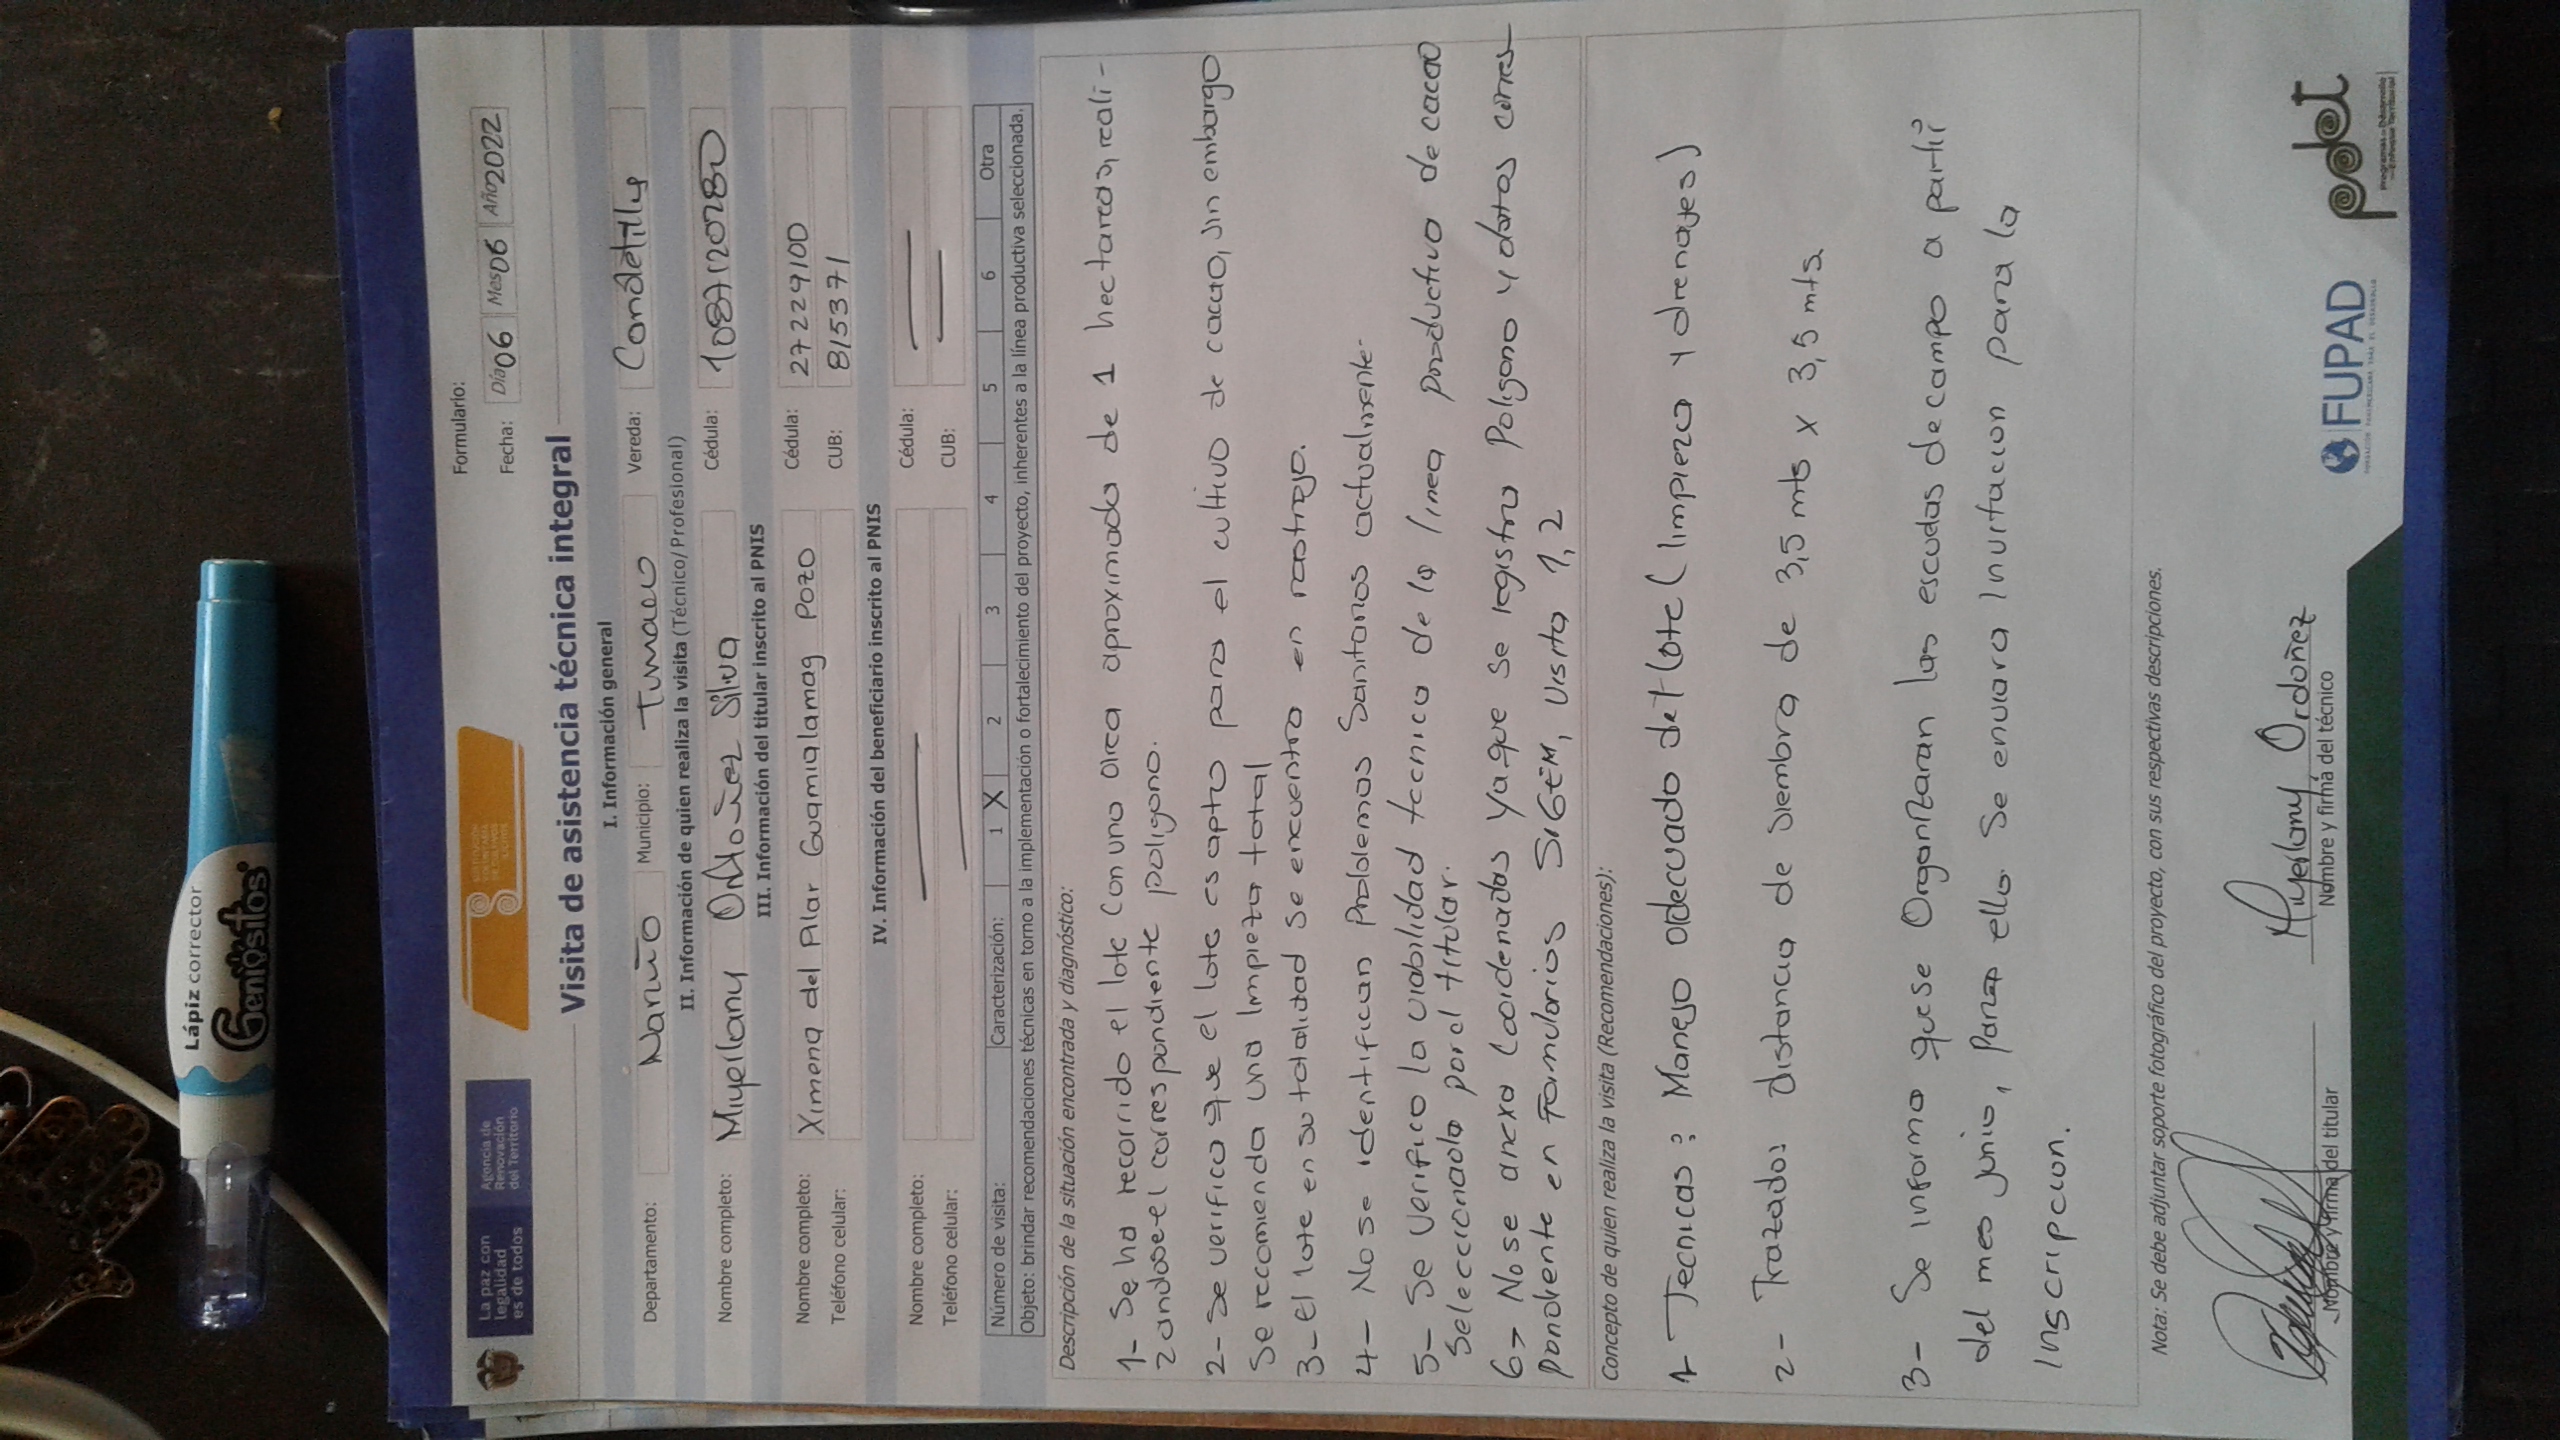 Lápiz corrector
Geniositos
La paz con
legalidad
es de todos
Agencia de
Renovación
del Territorio
SUSTITUCIÓN
VOLUNTARIA
DE CULTIVOS
ILÍCITOS
Formulario:
Fecha: Día 06 Mes 06 Año 2022
Visita de asistencia técnica integral
I. Información general
Departamento: Nariño Municipio: Tumaco Vereda: Candelilly
II. Información de quien realiza la visita (Técnico/Profesional)
Nombre completo: Miyerlany Ordoñez Silva Cédula: 1087120780
III. Información del titular inscrito al PNIS
Nombre completo: Ximena del Pilar Guamialamag Pozo Cédula: 27229100
Teléfono celular: CUB: 815371
IV. Información del beneficiario inscrito al PNIS
Nombre completo: Cédula:
Teléfono celular: CUB:
Número de visita: Caracterización: 1 X 2 3 4 5 6 Otra
Objeto: brindar recomendaciones técnicas en torno a la implementación o fortalecimiento del proyecto, inherentes a la línea productiva seleccionada.
Descripción de la situación encontrada y diagnóstico:
1- Se ha recorrido el lote con una area aproximada de 1 hectareas, reali-
zandose el correspondiente poligono.
2- Se verifico que el lote es apto para el cultivo de cacao, sin embargo
se recomienda una limpieza total
3- El lote en su totalidad se encuentra en rastrojo.
4- No se identifican Problemas Sanitarios actualmente-
5- Se verifico la viabilidad tecnica de la linea productiva de cacao
Seleccionada por el titular.
6> No se anexa Coordenadas ya que se registra Poligono y datos corres-
pondiente en Formularios SIGEM, Visita 1, 2
Concepto de quien realiza la visita (Recomendaciones):
1- Tecnicas: Manejo adecuado del lote (limpieza y drenajes)
2- Trazados distancia de Siembra de 3,5 mts x 3,5 mts
3- Se informa que se Organizaran las escuelas de campo a partir
del mes junio, Para ello. Se enviara Invitacion para la
Inscripcion.
Nota: Se debe adjuntar soporte fotográfico del proyecto, con sus respectivas descripciones.
Nombre y firma del titular
Miyerlany Ordoñez
Nombre y firma del técnico
FUPAD
pdet
Programas de Desarrollo
con Enfoque Territorial